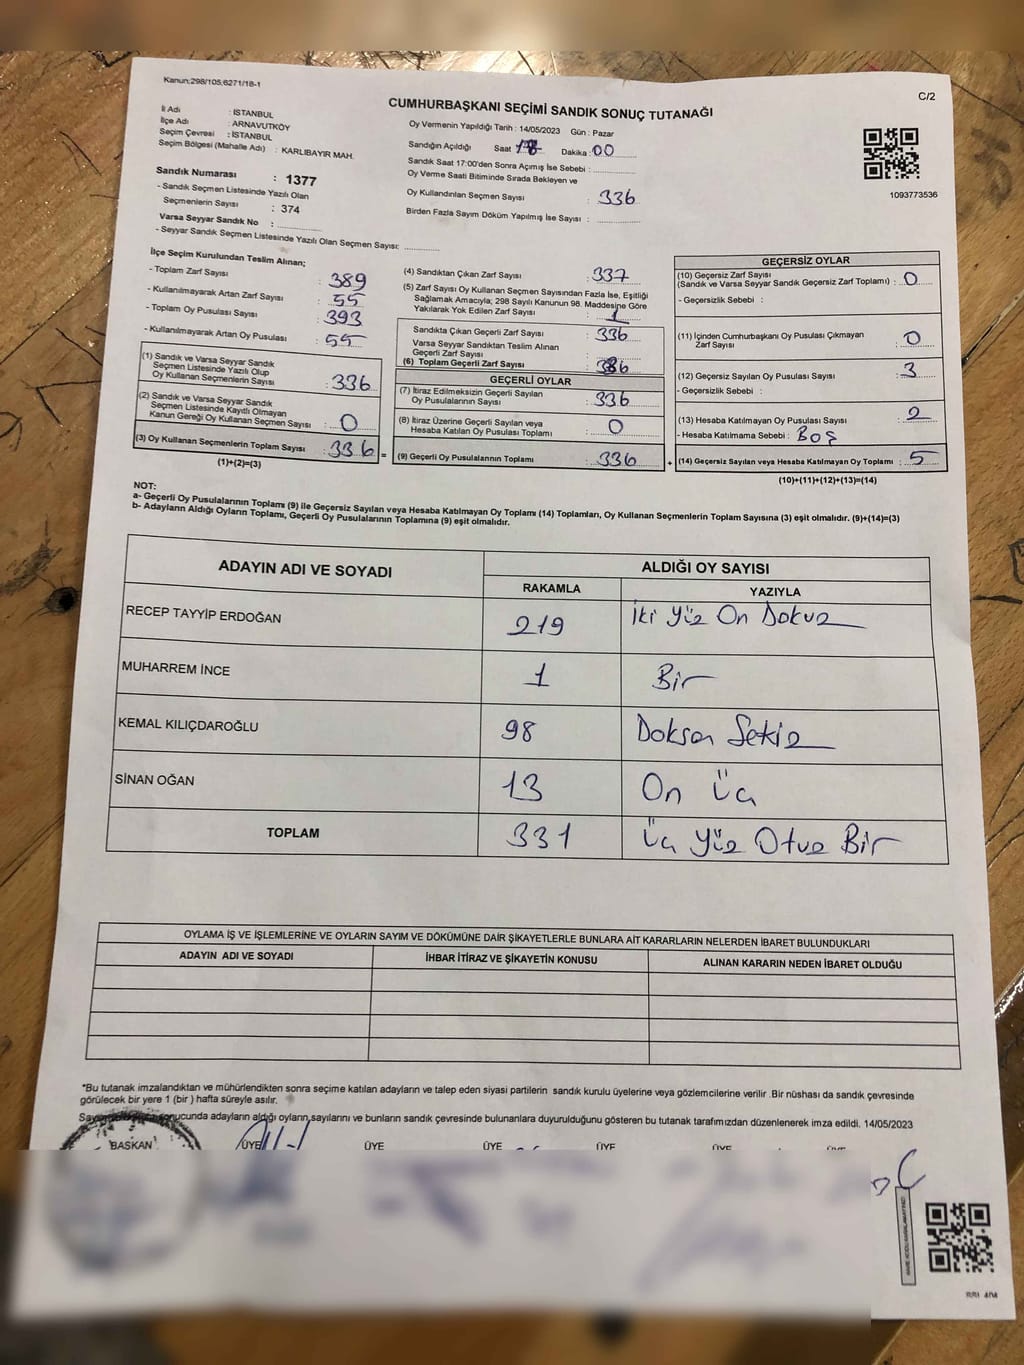 Kanun;298/105;6271/18-1
C/2
CUMHURBAŞKANI SEÇİMİ SANDIK SONUÇ TUTANAĞI
İl Adı : İSTANBUL
İlçe Adı : ARNAVUTKÖY
Seçim Çevresi : İSTANBUL
Seçim Bölgesi (Mahalle Adı) : KARLIBAYIR MAH.
Sandık Numarası : 1377
- Sandık Seçmen Listesinde Yazılı Olan
Seçmenlerin Sayısı : 374
Varsa Seyyar Sandık No :
- Seyyar Sandık Seçmen Listesinde Yazılı Olan Seçmen Sayısı:
Oy Vermenin Yapıldığı Tarih : 14/05/2023 Gün : Pazar
Sandığın Açıldığı Saat 18 Dakika : 00
Sandık Saat 17:00'den Sonra Açımış İse Sebebi :
Oy Verme Saati Bitiminde Sırada Bekleyen ve
Oy Kullandırılan Seçmen Sayısı : 336
Birden Fazla Sayım Döküm Yapılmış İse Sayısı :
1093773536
İlçe Seçim Kurulundan Teslim Alınan;
- Toplam Zarf Sayısı : 389
- Kullanılmayarak Artan Zarf Sayısı : 55
- Toplam Oy Pusulası Sayısı : 393
- Kullanılmayarak Artan Oy Pusulası : 55
(1) Sandık ve Varsa Seyyar Sandık
Seçmen Listesinde Yazılı Olup
Oy Kullanan Seçmenlerin Sayısı : 336
(2) Sandık ve Varsa Seyyar Sandık
Seçmen Listesinde Kayıtlı Olmayan
Kanun Gereği Oy Kullanan Seçmen Sayısı : 0
(3) Oy Kullanan Seçmenlerin Toplam Sayısı : 336 =
(1)+(2)=(3)
(4) Sandıktan Çıkan Zarf Sayısı : 337
(5) Zarf Sayısı Oy Kullanan Seçmen Sayısından Fazla İse, Eşitliği
Sağlamak Amacıyla; 298 Sayılı Kanunun 98. Maddesine Göre
Yakılarak Yok Edilen Zarf Sayısı : 1
Sandıkta Çıkan Geçerli Zarf Sayısı : 336
Varsa Seyyar Sandıktan Teslim Alınan
Geçerli Zarf Sayısı :
(6) Toplam Geçerli Zarf Sayısı : 336
GEÇERLİ OYLAR
(7) İtiraz Edilmeksizin Geçerli Sayılan
Oy Pusulalarının Sayısı : 336
(8) İtiraz Üzerine Geçerli Sayılan veya
Hesaba Katılan Oy Pusulası Toplamı : 0
(9) Geçerli Oy Pusulalarının Toplamı : 336 +
GEÇERSİZ OYLAR
(10) Geçersiz Zarf Sayısı
(Sandık ve Varsa Seyyar Sandık Geçersiz Zarf Toplamı) : 0
- Geçersizlik Sebebi :
(11) İçinden Cumhurbaşkanı Oy Pusulası Çıkmayan
Zarf Sayısı : 0
(12) Geçersiz Sayılan Oy Pusulası Sayısı : 3
- Geçersizlik Sebebi :
(13) Hesaba Katılmayan Oy Pusulası Sayısı : 2
- Hesaba Katılmama Sebebi : BOŞ
(14) Geçersiz Sayılan veya Hesaba Katılmayan Oy Toplamı : 5
(10)+(11)+(12)+(13)=(14)
NOT:
a- Geçerli Oy Pusulalarının Toplamı (9) ile Geçersiz Sayılan veya Hesaba Katılmayan Oy Toplamı (14) Toplamları, Oy Kullanan Seçmenlerin Toplam Sayısına (3) eşit olmalıdır. (9)+(14)=(3)
b- Adayların Aldığı Oyların Toplamı, Geçerli Oy Pusulalarının Toplamına (9) eşit olmalıdır.
ADAYIN ADI VE SOYADI
ALDIĞI OY SAYISI
RAKAMLA YAZIYLA
RECEP TAYYİP ERDOĞAN 219 İki Yüz On Dokuz
MUHARREM İNCE 1 Bir
KEMAL KILIÇDAROĞLU 98 Doksan Sekiz
SİNAN OĞAN 13 On Üç
TOPLAM 331 Üç Yüz Otuz Bir
OYLAMA İŞ VE İŞLEMLERİNE VE OYLARIN SAYIM VE DÖKÜMÜNE DAİR ŞİKAYETLERLE BUNLARA AİT KARARLARIN NELERDEN İBARET BULUNDUKLARI
ADAYIN ADI VE SOYADI İHBAR İTİRAZ VE ŞİKAYETİN KONUSU ALINAN KARARIN NEDEN İBARET OLDUĞU
*Bu tutanak imzalandıktan ve mühürlendikten sonra seçime katılan adayların ve talep eden siyasi partilerin sandık kurulu üyelerine veya gözlemcilerine verilir .Bir nüshası da sandık çevresinde
görülecek bir yere 1 (bir ) hafta süreyle asılır.
sonucunda adayların aldığı oyların,sayılarını ve bunların sandık çevresinde bulunanlara duyurulduğunu gösteren bu tutanak tarafımızdan düzenlenerek imza edildi. 14/05/2023
BAŞKAN ÜYE ÜYE ÜYE ÜYE ÜYE ÜYE